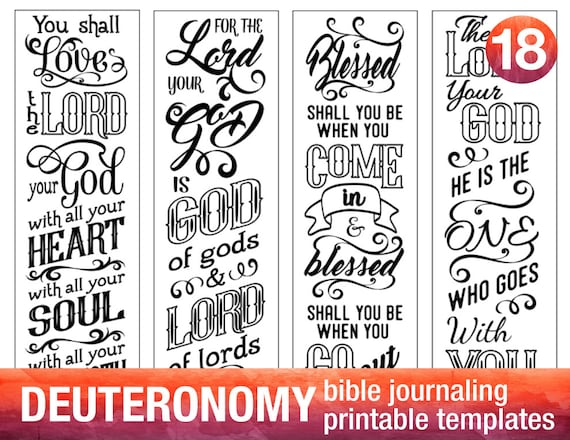 You shall
Love
the
LORD
your God
with all your
HEART
with all your
SOUL
with all your
FOR THE
Lord
YOUR
GOD
IS
GOD
of gods
&
LORD
of lords
Blessed
SHALL YOU BE
WHEN YOU
COME
in
&
blessed
SHALL YOU BE
WHEN YOU
GO out
The
LORD
Your
GOD
HE IS THE
ONE
WHO GOES
With
YOU
18
DEUTERONOMY
bible journaling
printable templates